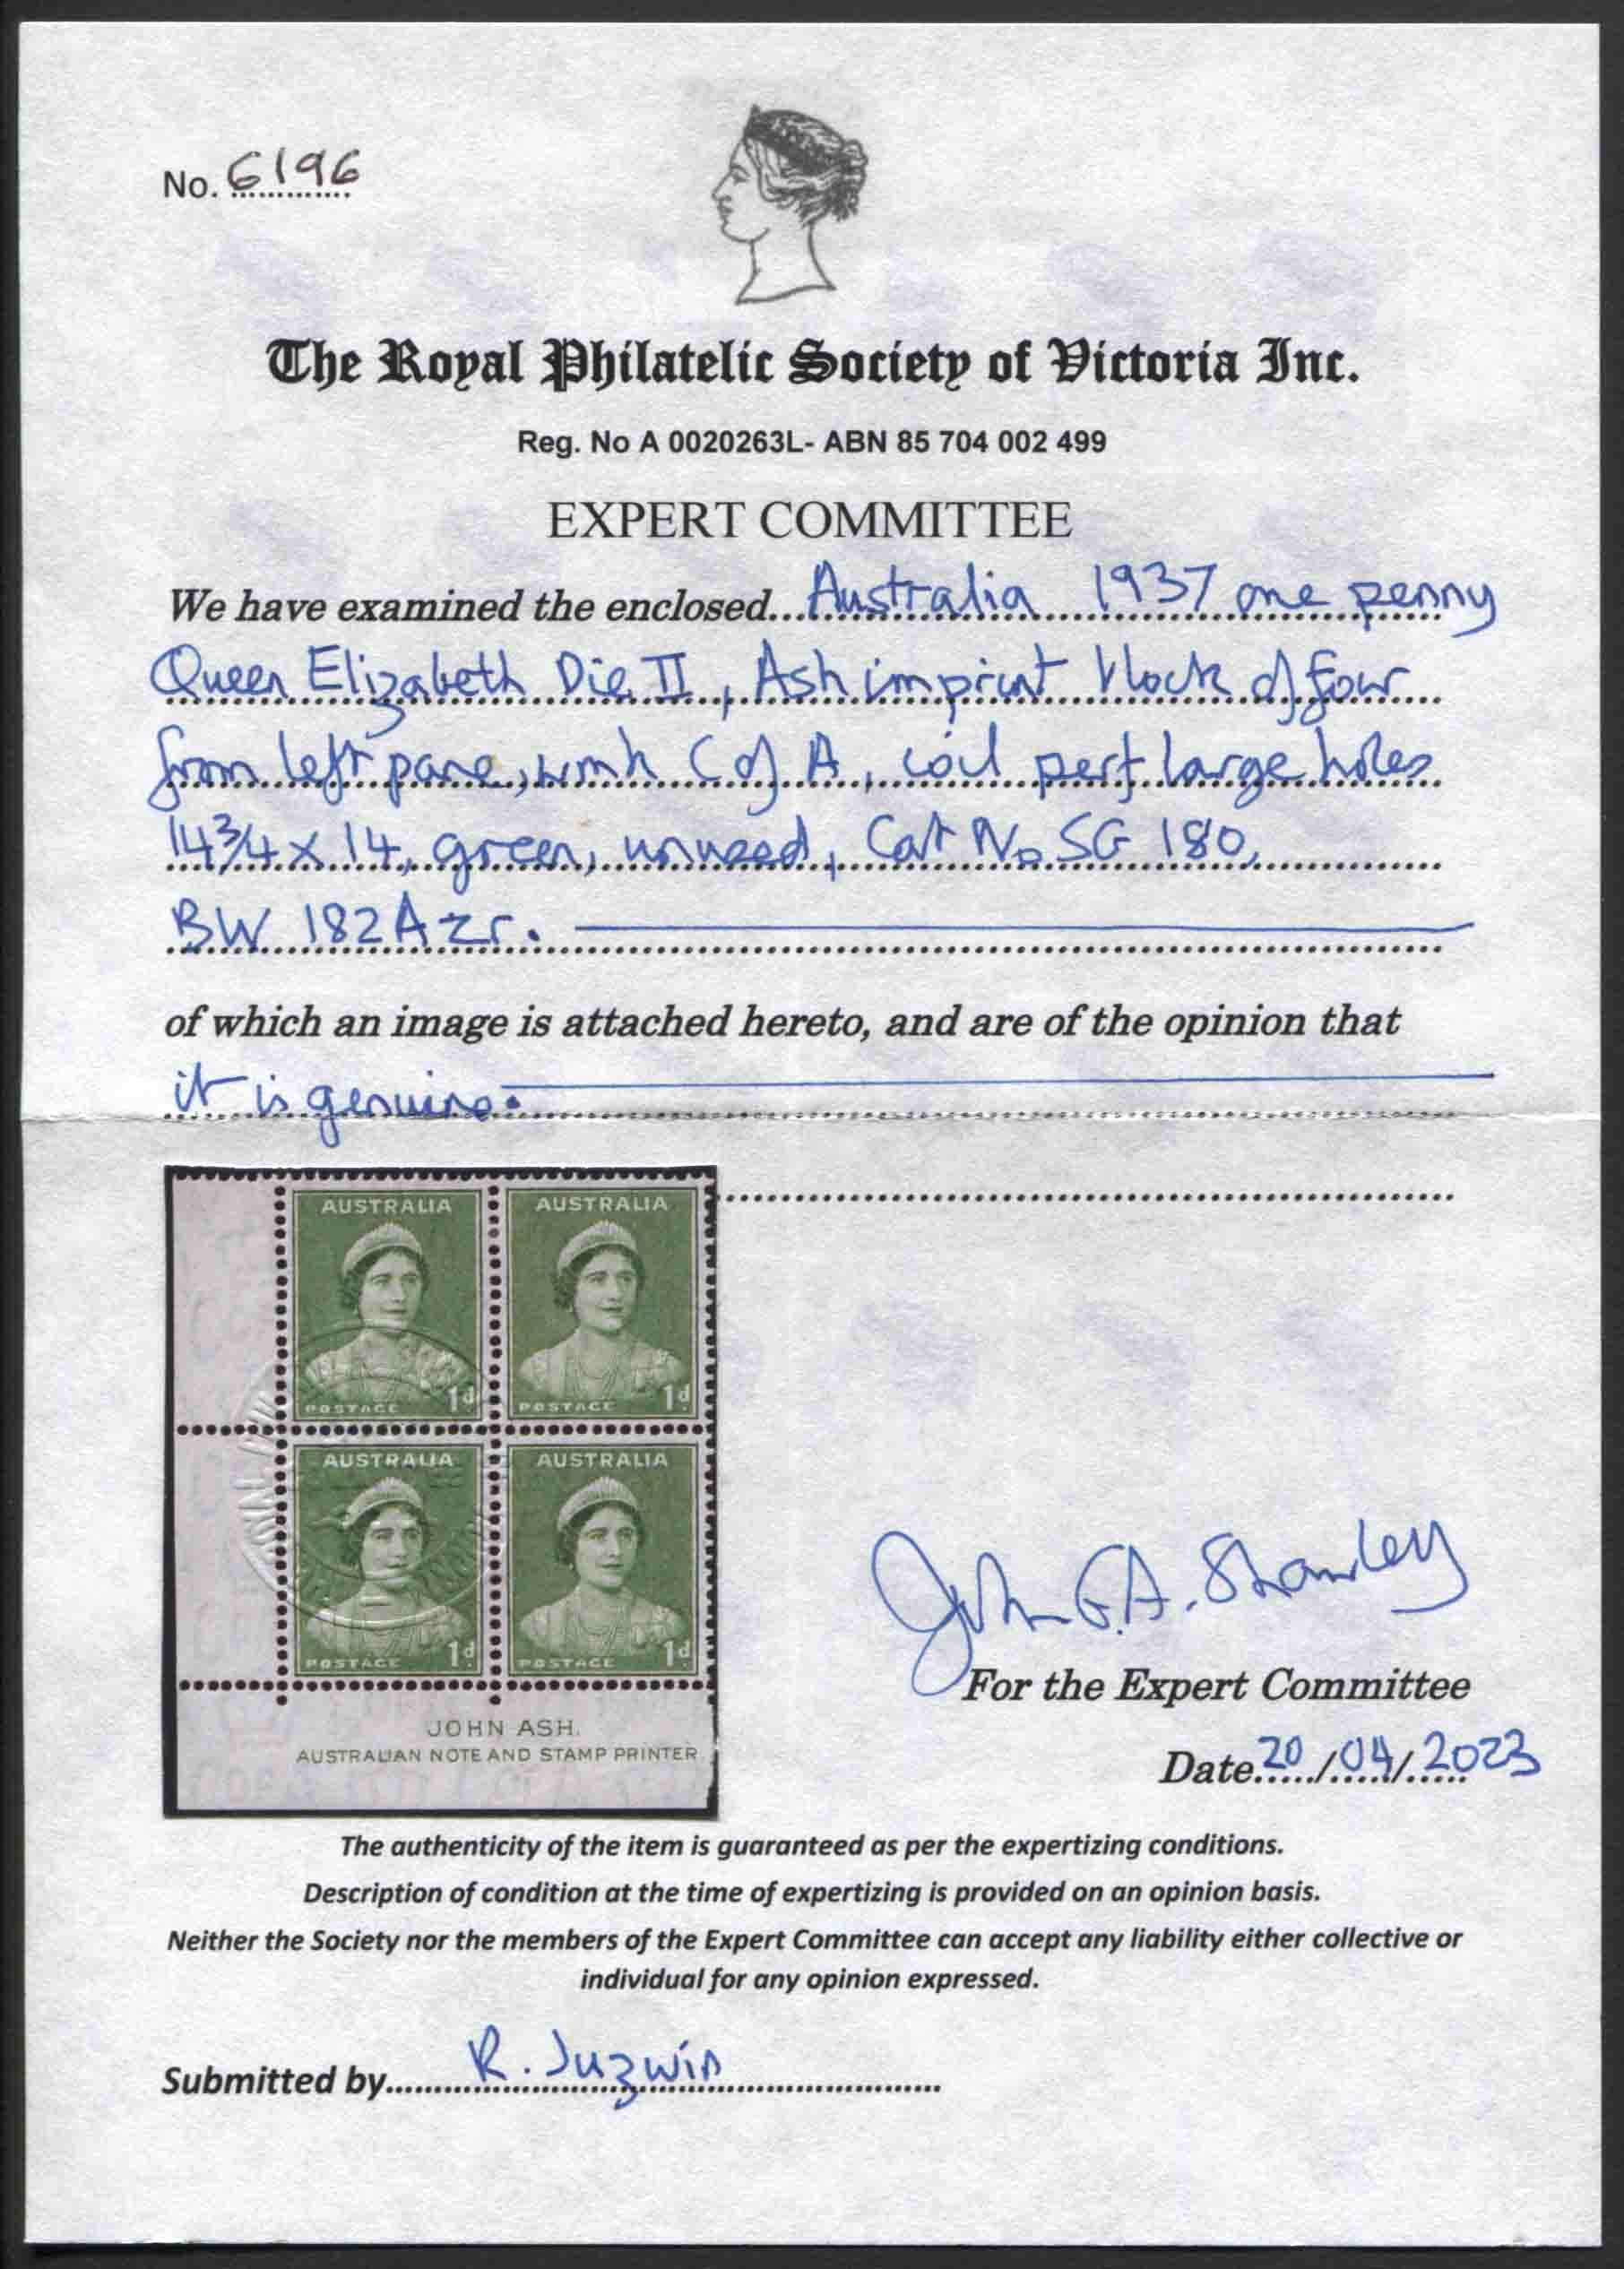 No. 6196
The Royal Philatelic Society of Victoria Inc.
Reg. No A 0020263L- ABN 85 704 002 499
EXPERT COMMITTEE
We have examined the enclosed... Australia 1937 one penny
Queen Elizabeth Die II, Ash imprint block of four
from left pane, wmk C of A, coil perf large holes
14 3/4 x 14, green, unused, Cat No SG 180,
BW 182Azr.
of which an image is attached hereto, and are of the opinion that
it is genuine.
AUSTRALIA AUSTRALIA
POSTAGE 1d POSTAGE 1d
AUSTRALIA AUSTRALIA
POSTAGE 1d POSTAGE 1d
JOHN ASH.
AUSTRALIAN NOTE AND STAMP PRINTER.
John G.A. Shawley
For the Expert Committee
Date 20/04/2023
The authenticity of the item is guaranteed as per the expertizing conditions.
Description of condition at the time of expertizing is provided on an opinion basis.
Neither the Society nor the members of the Expert Committee can accept any liability either collective or
individual for any opinion expressed.
Submitted by R. Juzwin